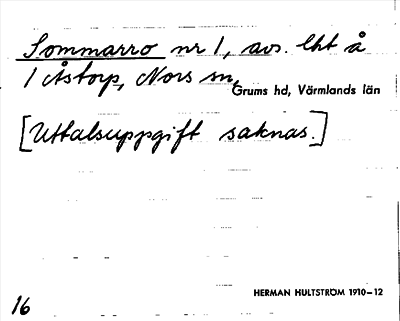 Sommarro nr 1, avs. lht å
1 Åstorp, Nors sn,
Grums hd, Värmlands län
[Uttalsuppgift saknas.]
HERMAN HULTSTRÖM 1910–12
16